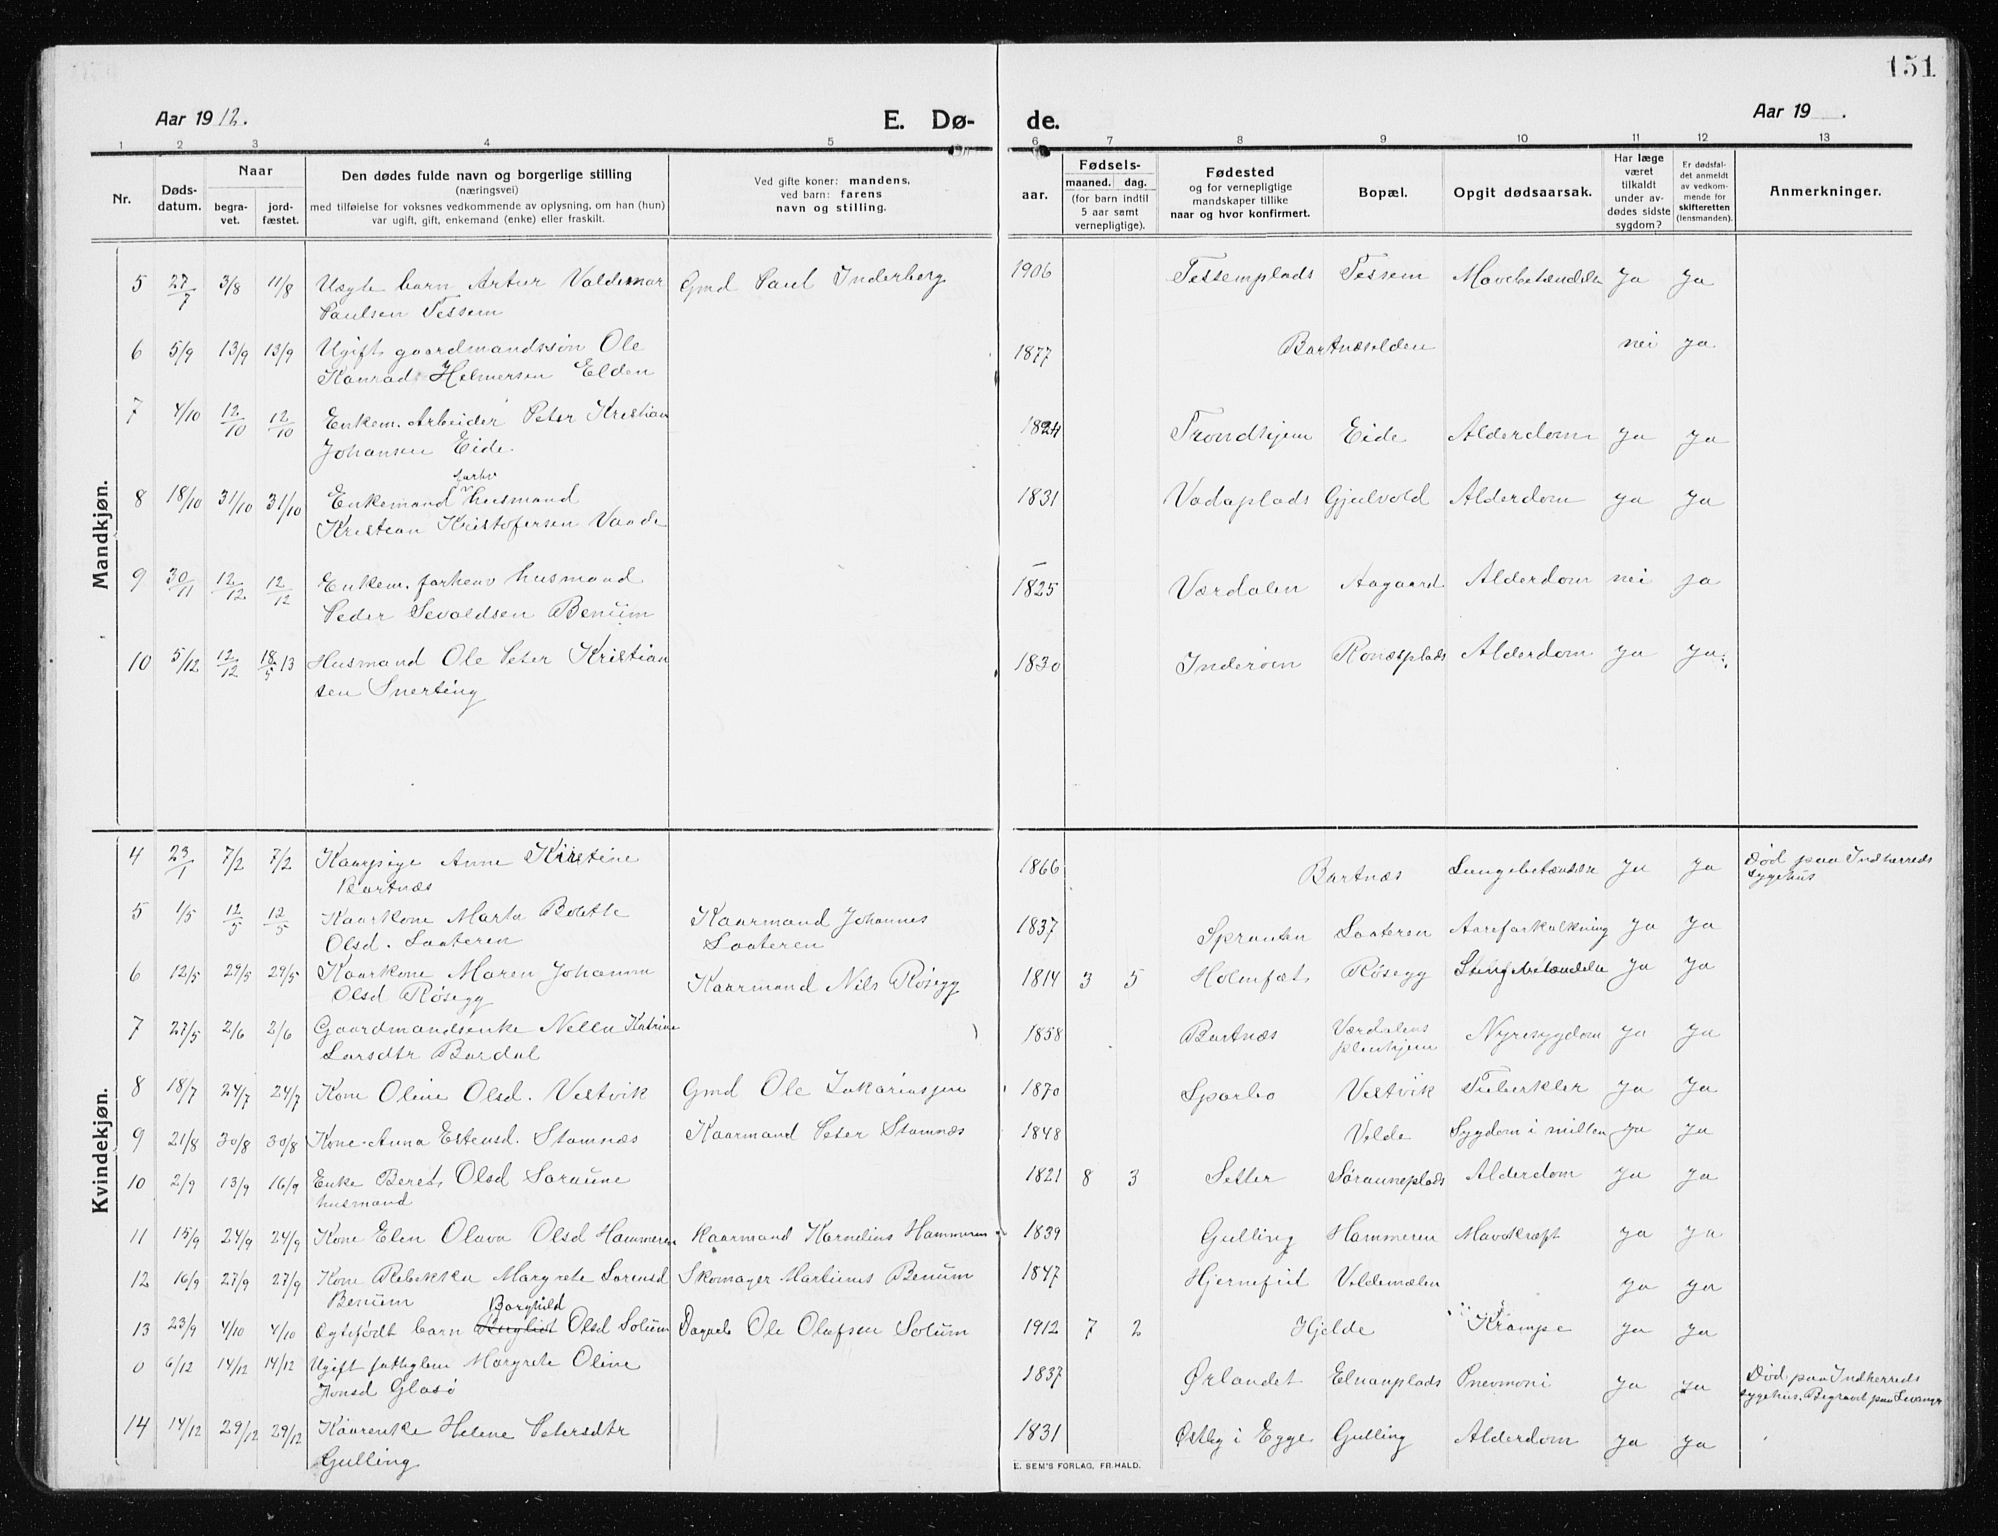 151
Aar 1912.
E. Dø-
de.
Aar 19 .
1 2 3 4 5 6 7 8 9 10 11 12 13
Nr.
Døds-
datum.
Naar
begra-
vet.
jord-
fæstet.
Den dødes fulde navn og borgerlige stilling
(næringsvei)
med tilføielse for voksnes vedkommende av oplysning, om han (hun)
var ugift, gift, enkemand (enke) eller fraskilt.
Ved gifte koner: mandens,
ved barn: farens
navn og stilling.
Fødsels-
aar.
maaned. dag.
(for barn indtil
5 aar samt
vernepligtige).
Fødested
og for vernepligtige
mandskaper tillike
naar og hvor konfirmert.
Bopæl.
Opgit dødsaarsak.
Har læge
været
tilkaldt
under av-
dødes sidste
sygdom?
Er dødsfal-
det anmeldt
av vedkom-
mende for
skifteretten
(lensmanden).
Anmerkninger.
Mandkjøn.
5 27/7 3/8 11/8 Uægte barn Artur Valdemar Gmd Paul Inderberg 1906 Tessemplads Tessem Mavebetændelse Ja Ja
Paulsen Tessem
6 5/9 13/9 13/9 Ugift gaardmandssøn Ole 1877 Bartnæselden nei ja
Konrad Helmersen Elden
7 4/10 12/10 12/10 Enkem. Arbeider Peter Kristian 1824 Trondhjem Eide Alderdom ja ja
Johansen Eide.
8 18/10 31/10 31/10 Enkemand forhv husmand 1831 Vadaplads Gjulvold Alderdom ja ja
Kristian Kristofersen Vaade
9 30/11 12/12 12/12 Enkem. forhenv husmand 1825 Værdalen Aagaard Alderdom nei ja
Peder Sevaldsen Benum
10 5/12 12/12 18/5 13 Husmand Ole Peter Kristian 1830 Inderøen Ronæsplads Alderdom ja ja
sen Snerting
Kvindekjøn.
4 23/1 7/2 7/2 Kaarpige Anne Kirstine 1866 Bartnæs Lungebetændelse Ja Ja Død paa Indherreds
Bartnæs Sygehus
5 1/5 12/5 12/5 Kaarkone Marta Bolette Kaarmand Johannes 1837 Saateren Aareforkalkning Ja Ja
Olsd. Saateren Saateren
6 12/5 29/5 29/5 Kaarkone Maren Johanna Kaarmand Nils Røsegg 1814 3 5 Røsegg Ja Ja
Olsd Røsegg
7 27/5 2/6 2/6 Gaardmandsenke Katrine 1858 Bartnæs Værdalens Nyresygdom Ja Ja
Larsdtr Bardal pleiehjem
8 18/7 24/7 24/7 Kone Oline Olsd. Vestvik Gmd Ole Zakariassen 1870 Sparbo Vestvik Tuberkler Ja Ja
9 21/8 30/8 30/8 Kone Anna Estensd. Stamnæs Kaarmand Peter Stamnæs 1848 Velde Sygdom i milten ja Ja
10 2/9 13/9 16/9 Enke Beret Olsd Søraune 1821 8 3 Setter Sørauneplads Alderdom Ja Ja
husmand
11 15/9 24/9 24/9 Kone Elen Olava Olsd Hammeren kaarmand Kornelius Hammeren 1839 Gulling Hammeren Mavekræft ja Ja
12 16/9 27/9 27/9 Kone Rebekka Margrete Sørensd Skomager Martinus Benum 1847 Veldemælen ja ja
Benum
13 23/9 4/10 4/10 Ægtefødt barn Borghild Olsd Solum Ole Olufsen Solum 1912 7 2 Hjelde Krampe ja ja
0 6/12 14/12 14/12 Ugift fattiglem Margrete Oline 1837 Ørlandet Pnevmoni ja ja Død paa Indherreds
Jonsd Glasø Sygehus. Begravet paa Levanger
14 14/12 29/12 29/12 Kaarenke Helene Petersdtr 1831 Østby i Egge Gulling Alderdom ja ja
Gulling
E. SEM'S FORLAG, FR.HALD.